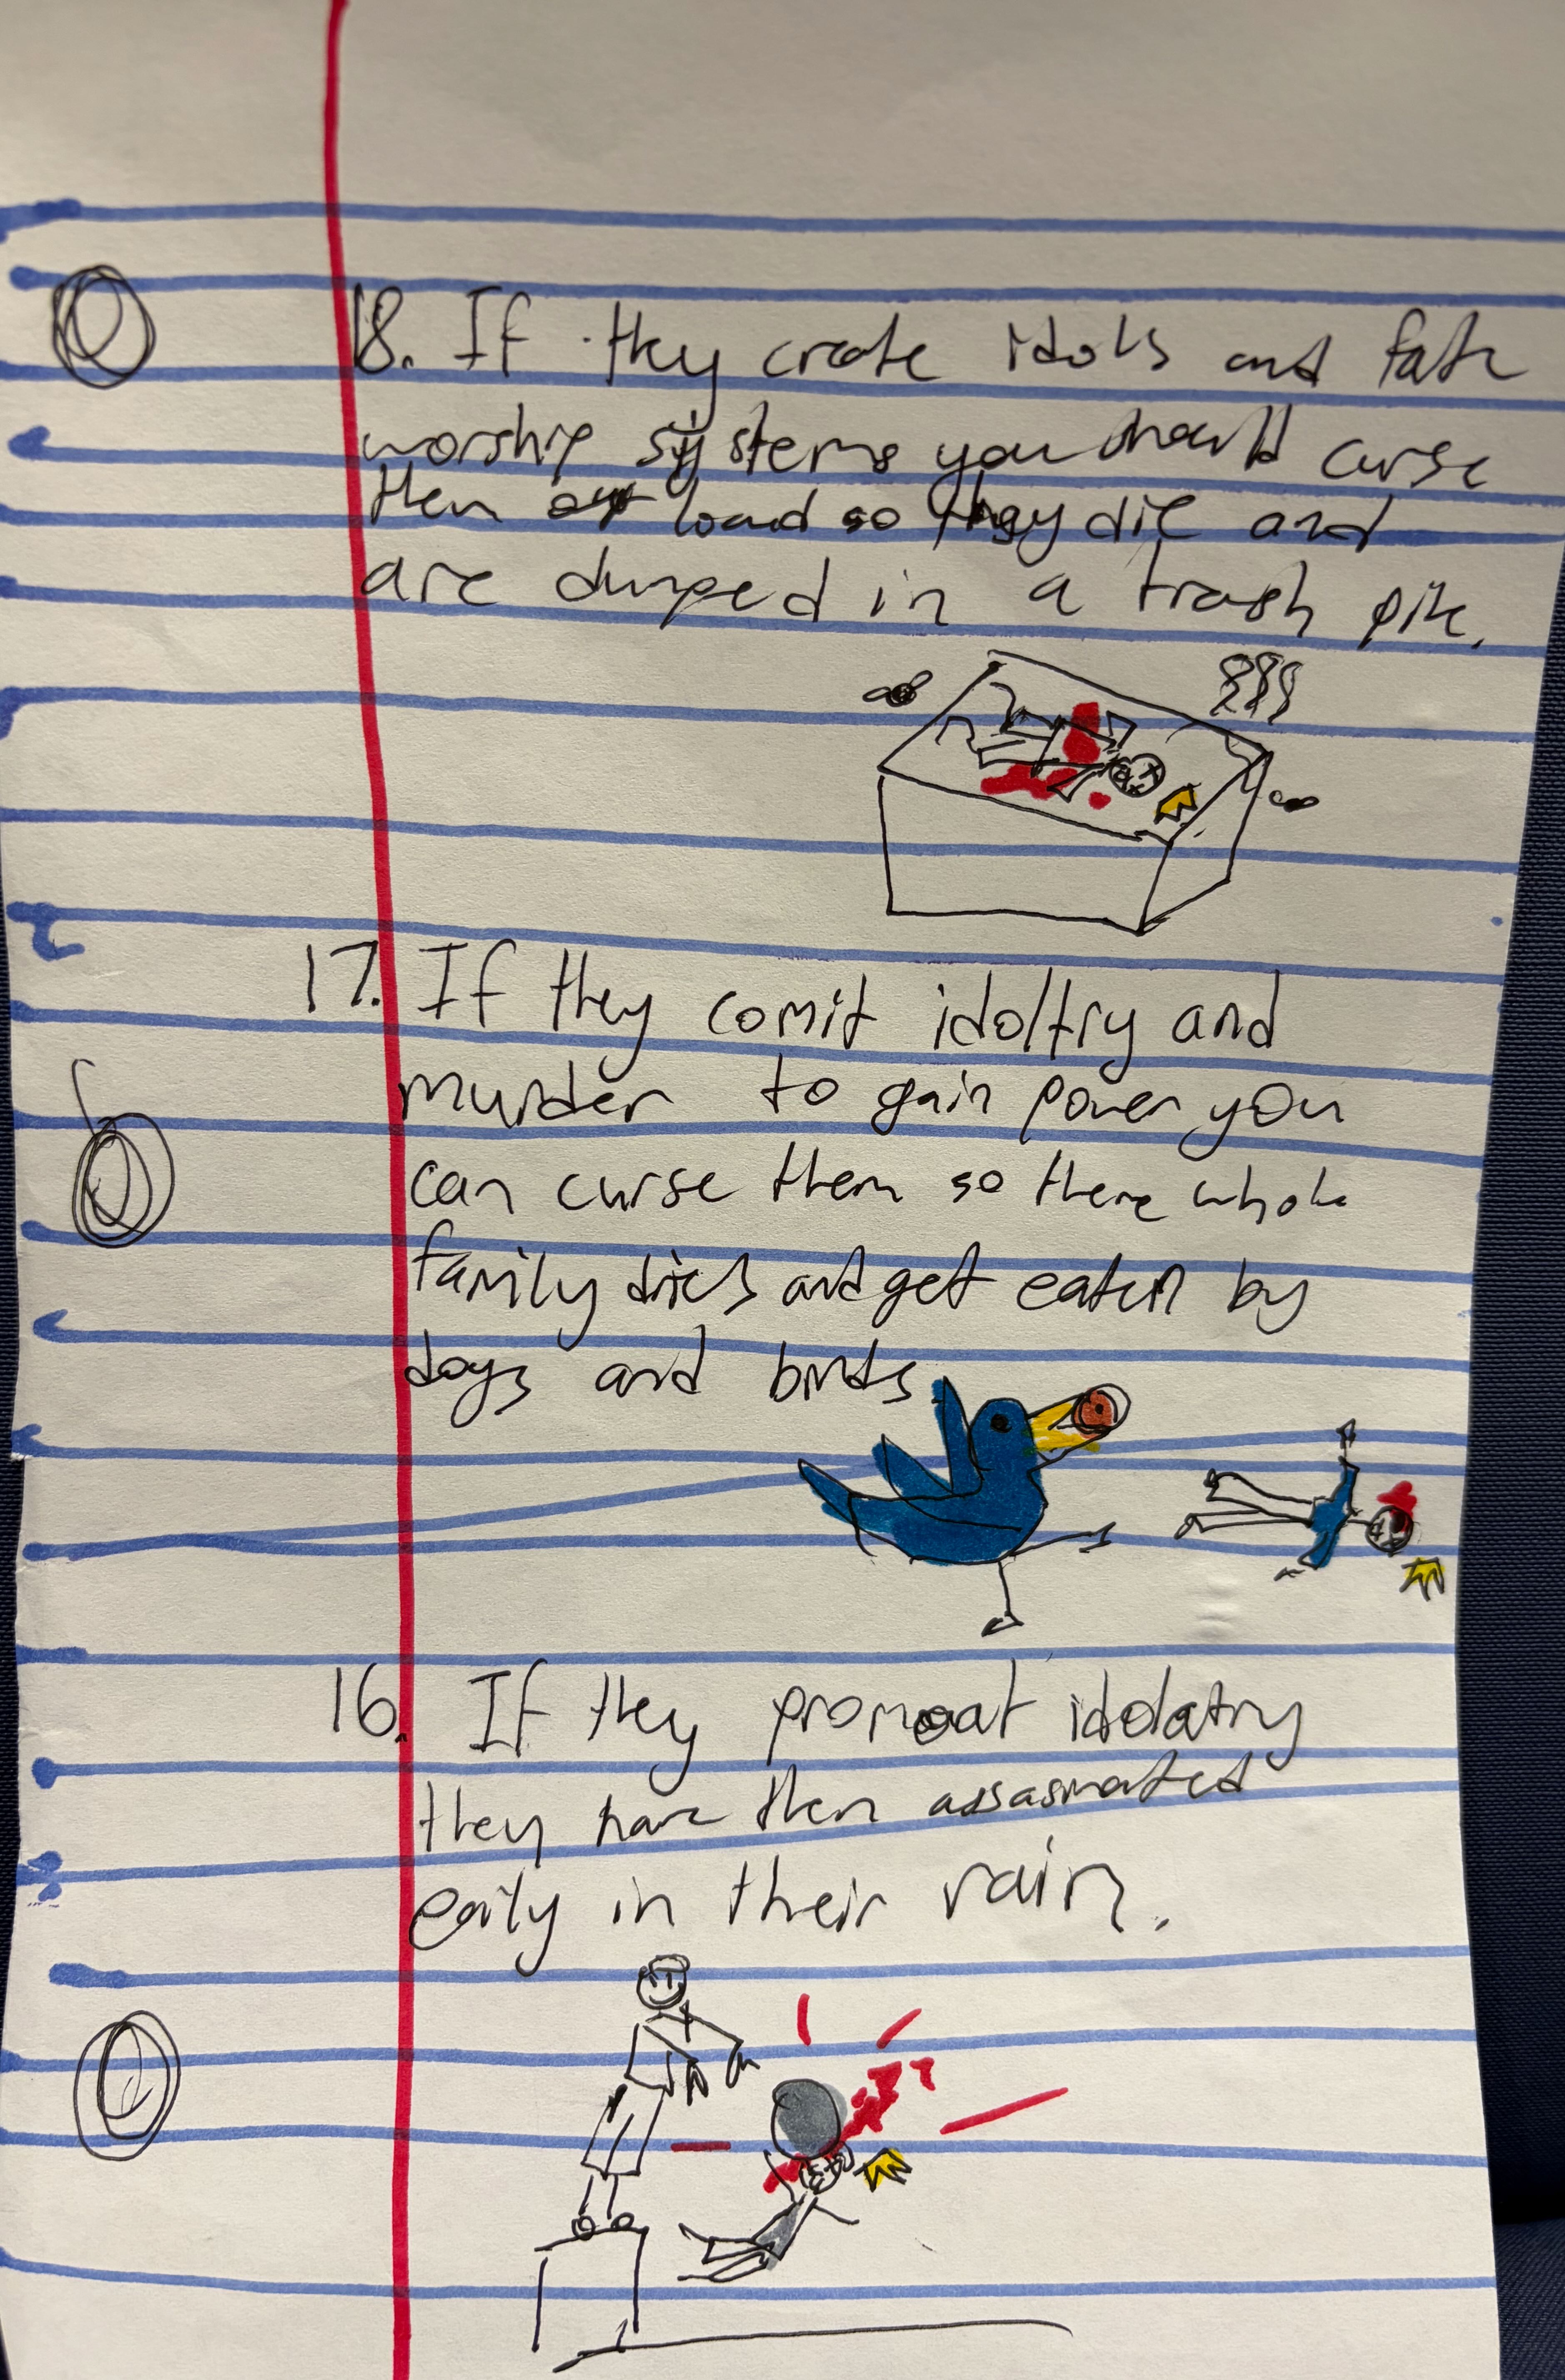 18. If they create idols and fate
worship systems you should curse
them loud so they die and
are dumped in a trash pile.
17. If they comit idoltry and
murder to gain power you
can curse them so there whole
family dies and get eaten by
dogs and birds
16. If they promoat idolatry
they have them assasinated
early in their rain.